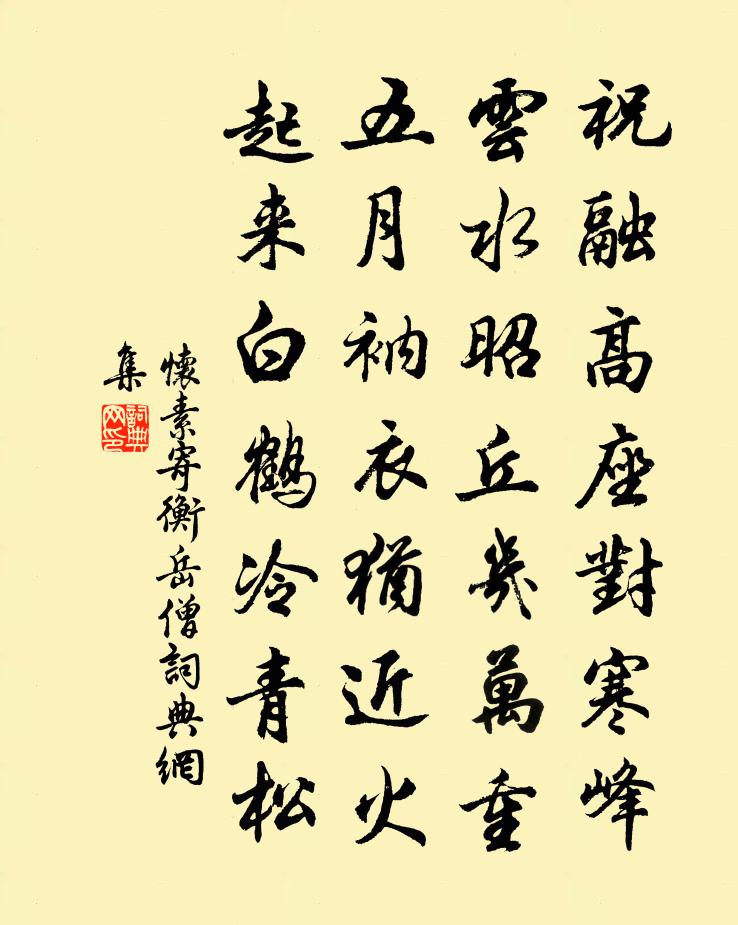 祝融高座對寒峰
雲水昭丘幾萬重
五月衲衣猶近火
起来白鶴冷青松
懷素寄衡岳僧詞典網
集
詞典
网印